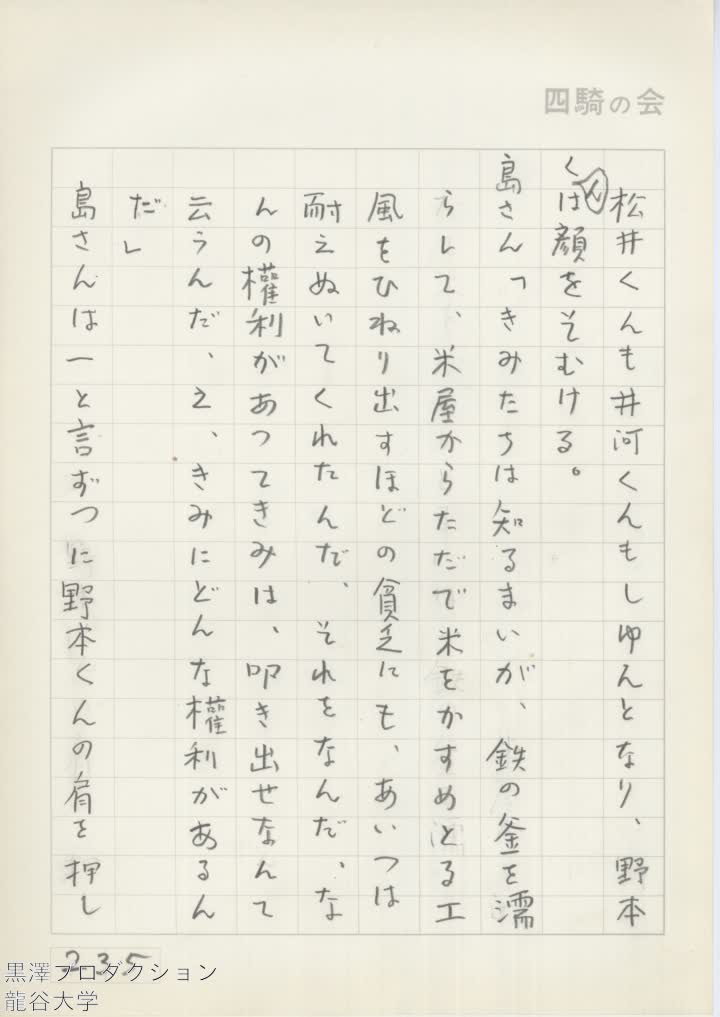 四騎の会
松井くんも井河くんもしゆんとなり、野本
くんは顔をそむける。
島さん「きみたちは知るまいが、鉄の釜を濡
らして、米屋からただで米をかすめとる工
風をひねり出すほどの貧乏にも、あいつは
耐えぬいてくれたんだ、それをなんだ、な
んの權利があつてきみは、叩き出せなんて
云うんだ、え、きみにどんな權利があるん
だ」
島さんは一と言ずつに野本くんの肩を押し
235
黒澤プロダクション
龍谷大学